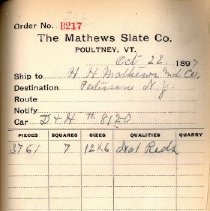 Order No. 8217
The Mathews Slate Co.
POULTNEY, VT.
Oct 22, 189
Ship to H H Mathews
Destination Paterson N. J.
Route
Notify
Car D & H # 8120
PIECES SQUARES SIZES QUALITIES QUARRY
3761 7 12x6 Reds